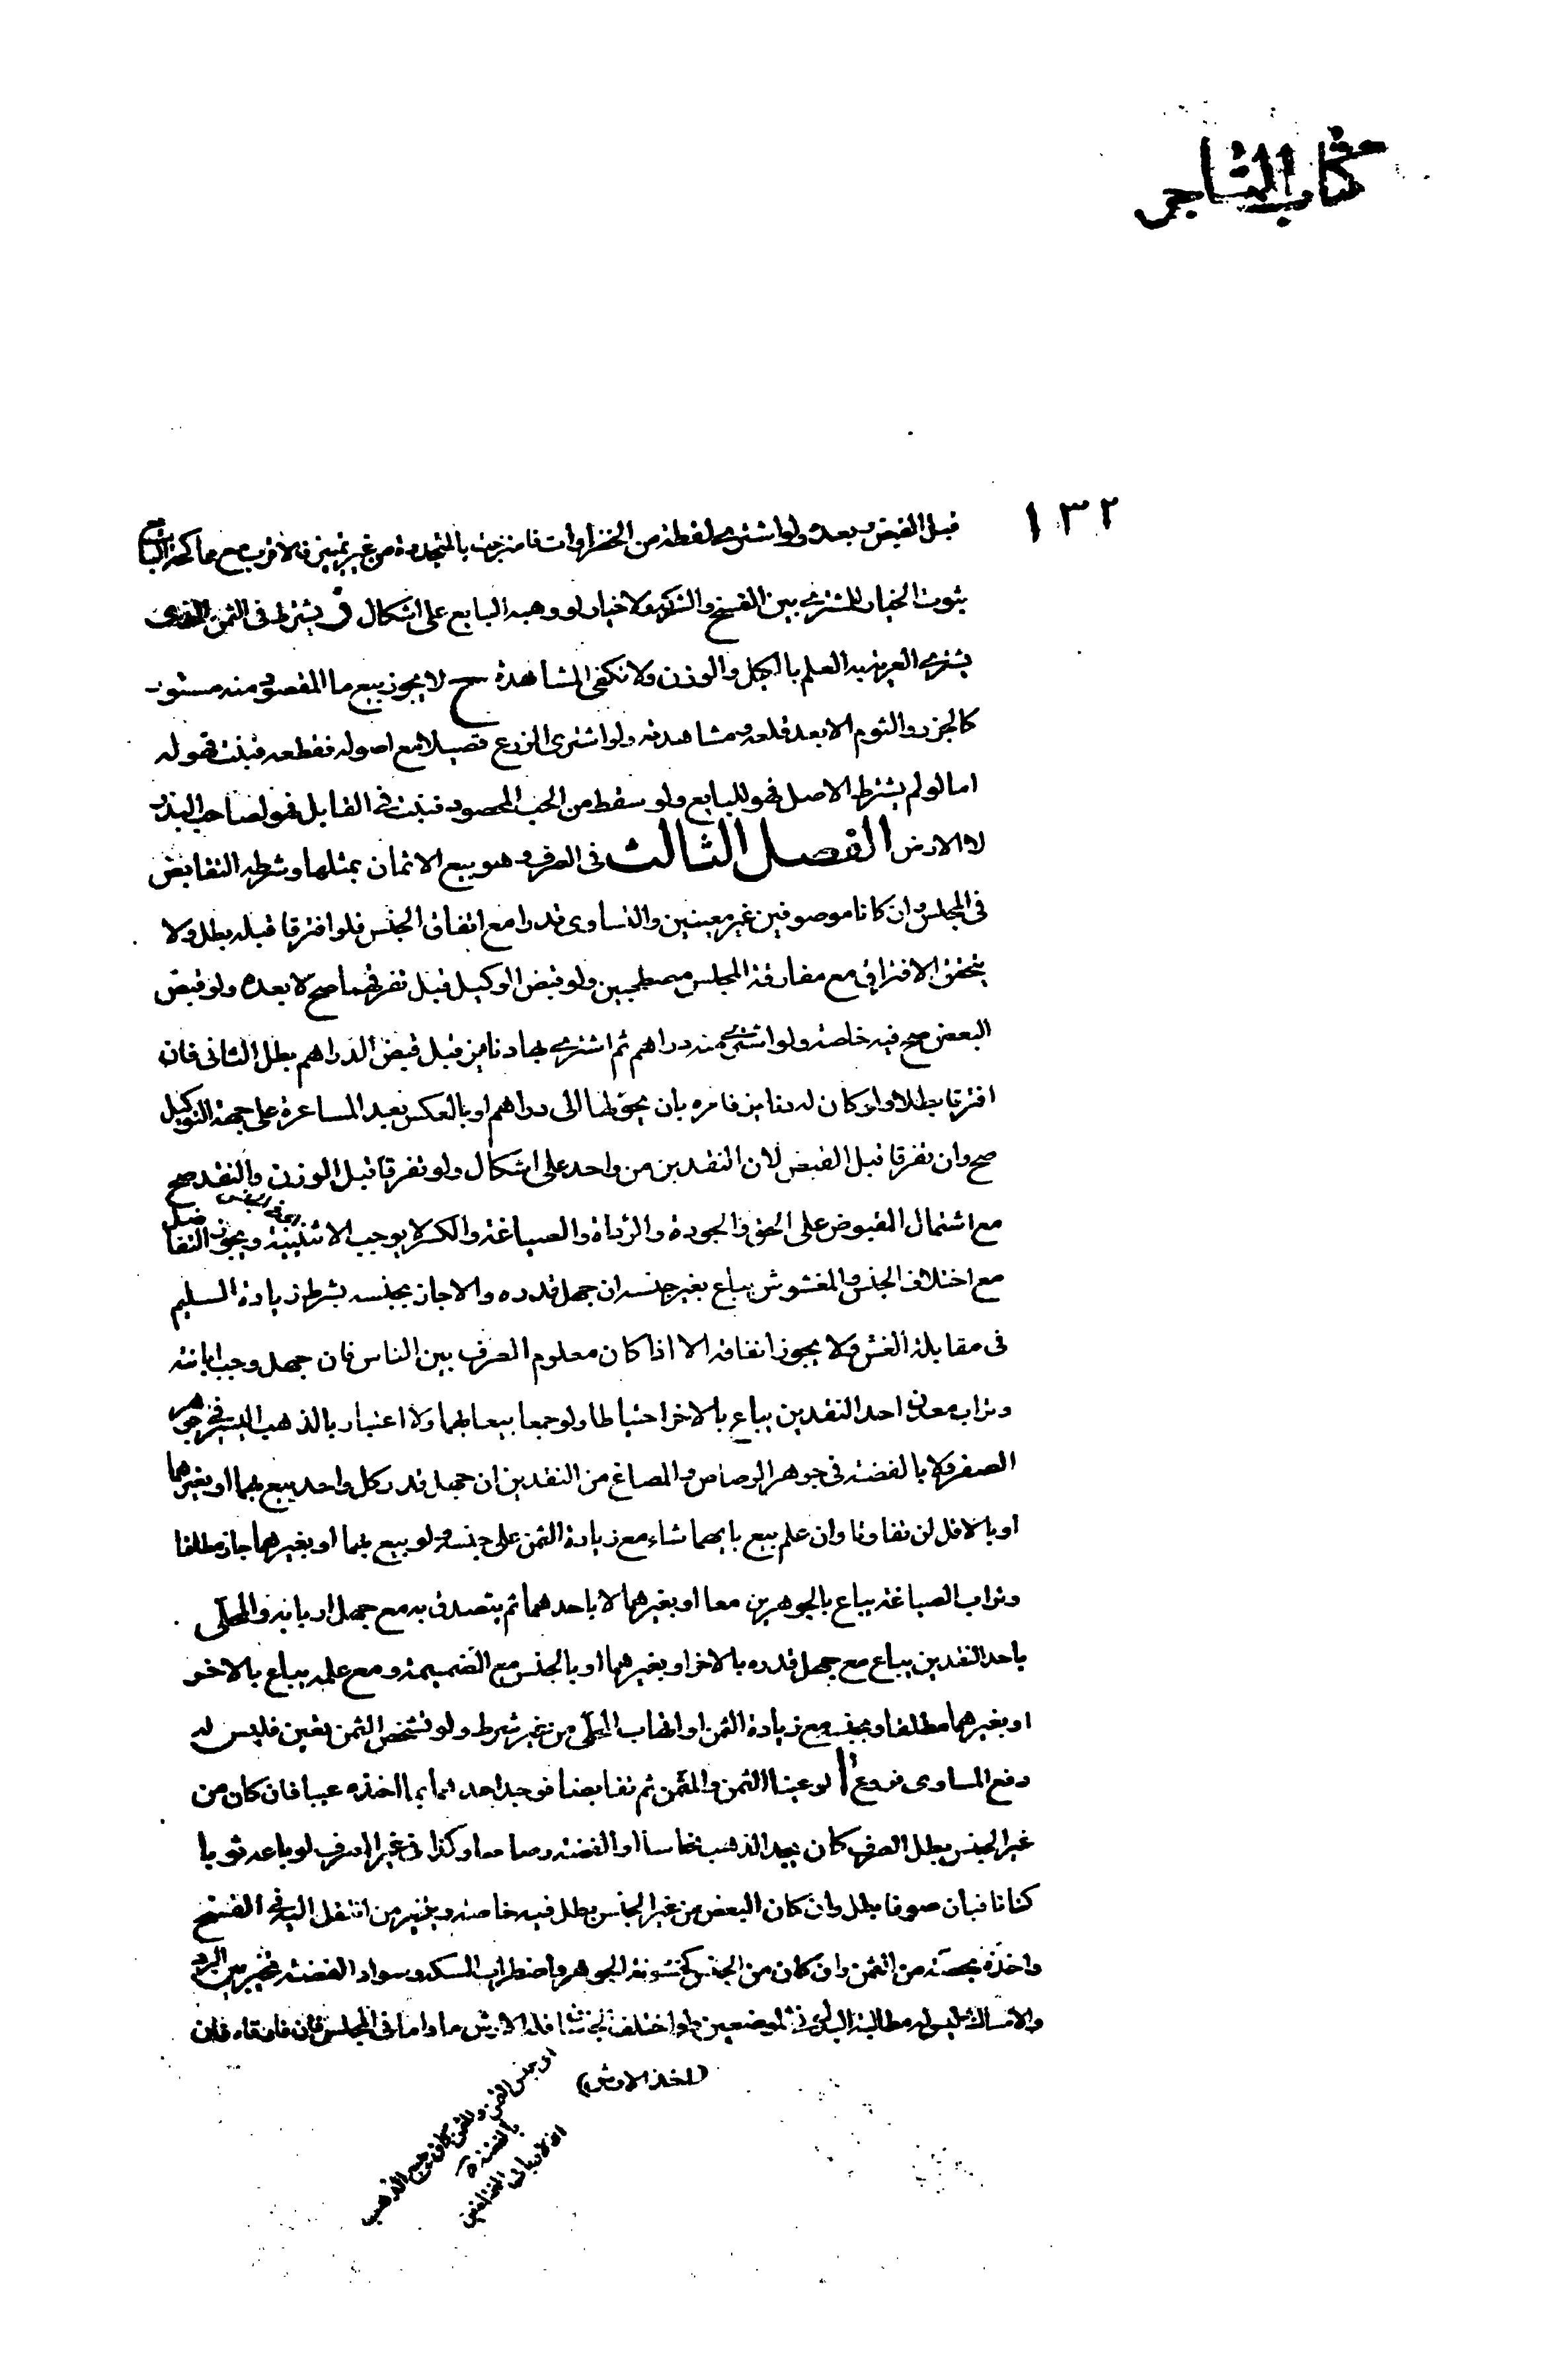 كتاب المتاجر
١٣٢
قبل القبض وبعده ولو اشترى لقطة من الخضراوات فامتزجت بالمتجددة من غير تميز فالاقرب مع مماكحة البايع
ثبوت الخيار للمشترى بين الفسخ والشركة ولا خيار لو وهبه البايع على اشكال ز يشترط فى الثمن الذى
يشترى العرية به العلم بالكيل والوزن ولا تكفى المشاهدة ح لا يجوز بيع ما المقصود منه مستور
كالجزر والثوم الا بعد قلعه ومشاهدته ولو اشترى الزرع قصيلا مع اصوله فقطعه فنبتت فهو له
اما لو لم يشترط الاصل فهو للبايع ولو سقط من الحب المحصود فنبت فى القابل فهو لصاحب البذر
لا الارض الفصل الثالث فى الصرف وهو بيع الاثمان بمثلها وشرطه التقابض
فى المجلس وان كانا موصوفين غير معينين والتساوى قدرا مع اتفاق الجنس فلو افترقا قبله بطل ولا
يتحقق الافتراق مع مفارقة المجلس مصطحبين ولو قبض الوكيل قبل تفرقهما صح لا بعده ولو قبض
البعض صح فيه خاصة ولو اشترى منه دراهم ثم اشترى بها دنانير قبل قبض الدراهم بطل الثانى فان
افترقا بطلا ولو كان له دنانير فامره بان يحولها الى دراهم او بالعكس بعد المساعرة على جهة التوكيل
صح وان تفرقا قبل القبض لان النقدين من واحد على اشكال ولو تفرقا قبل الوزن والنقد صح
مع اشتمال المقبوض على الحق والجودة والرداة والصياغة والكسر لا يوجب الاثنينية ويجوز التفاضل
مع اختلاف الجنس والمغشوش يباع بغير جنسه ان جهل قدره والا جاز بجنسه بشرط زيادة السليم
فى مقابلة الغش ولا يجوز انفاقه الا اذا كان معلوم الصرف بين الناس فان جهل وجب ابانته
وتراب معدن احد النقدين يباع بالاخر احتياطا ولو جمعا بيعا بهما ولا اعتبار بالذهب اليسير فى جوهر
الصفر ولا بالفضة فى جوهر الرصاص والمصاغ من النقدين ان جهل قدر كل واحد بيع بهما او بغيرهما
او بالاقل ان تفاوتا وان علم بيع بايهما شاء مع زيادة الثمن على جنسه ولو بيع بهما او بغيرهما جاز مطلقا
وتراب الصياغة يباع بالجوهرين معا او بغيرهما لا باحدهما ثم يتصدق به مع جهل اربابه والمحلى
باحد النقدين يباع مع جهل قدره بالاخر او بغيرهما او بالجنس مع الضميمة ومع علمه يباع بالاخر
او بغيرهما مطلقا وبجنسه مع زيادة الثمن او اتهاب المحلى من غير شرط ولو تشخص الثمن تعين فليس له
دفع المساوى فروع ا لو عينا الثمن والمثمن ثم تقابضا فوجد احدهما بما اخذه عيبا فان كان من
غير الجنس بطل الصرف كان يجد الذهب نحاسا او الفضة رصاصا وكذا فى غير الصرف لو باعه ثوبا
كتانا فبان صوفا بطل وان كان البعض من غير الجنس بطل فيه خاصة ويتخير من انتقل اليه فى الفسخ
واخذه بحصته من الثمن وان كان من الجنس كخشونة الجوهر واضطراب السكة وسواد الفضة تخير بين الرد
والامساك وليس له مطالبة البدل فى الموضعين ولو اختلف الجنسان فله الارش ما داما فى المجلس فان فارقاه فان
(اخذ الارش)